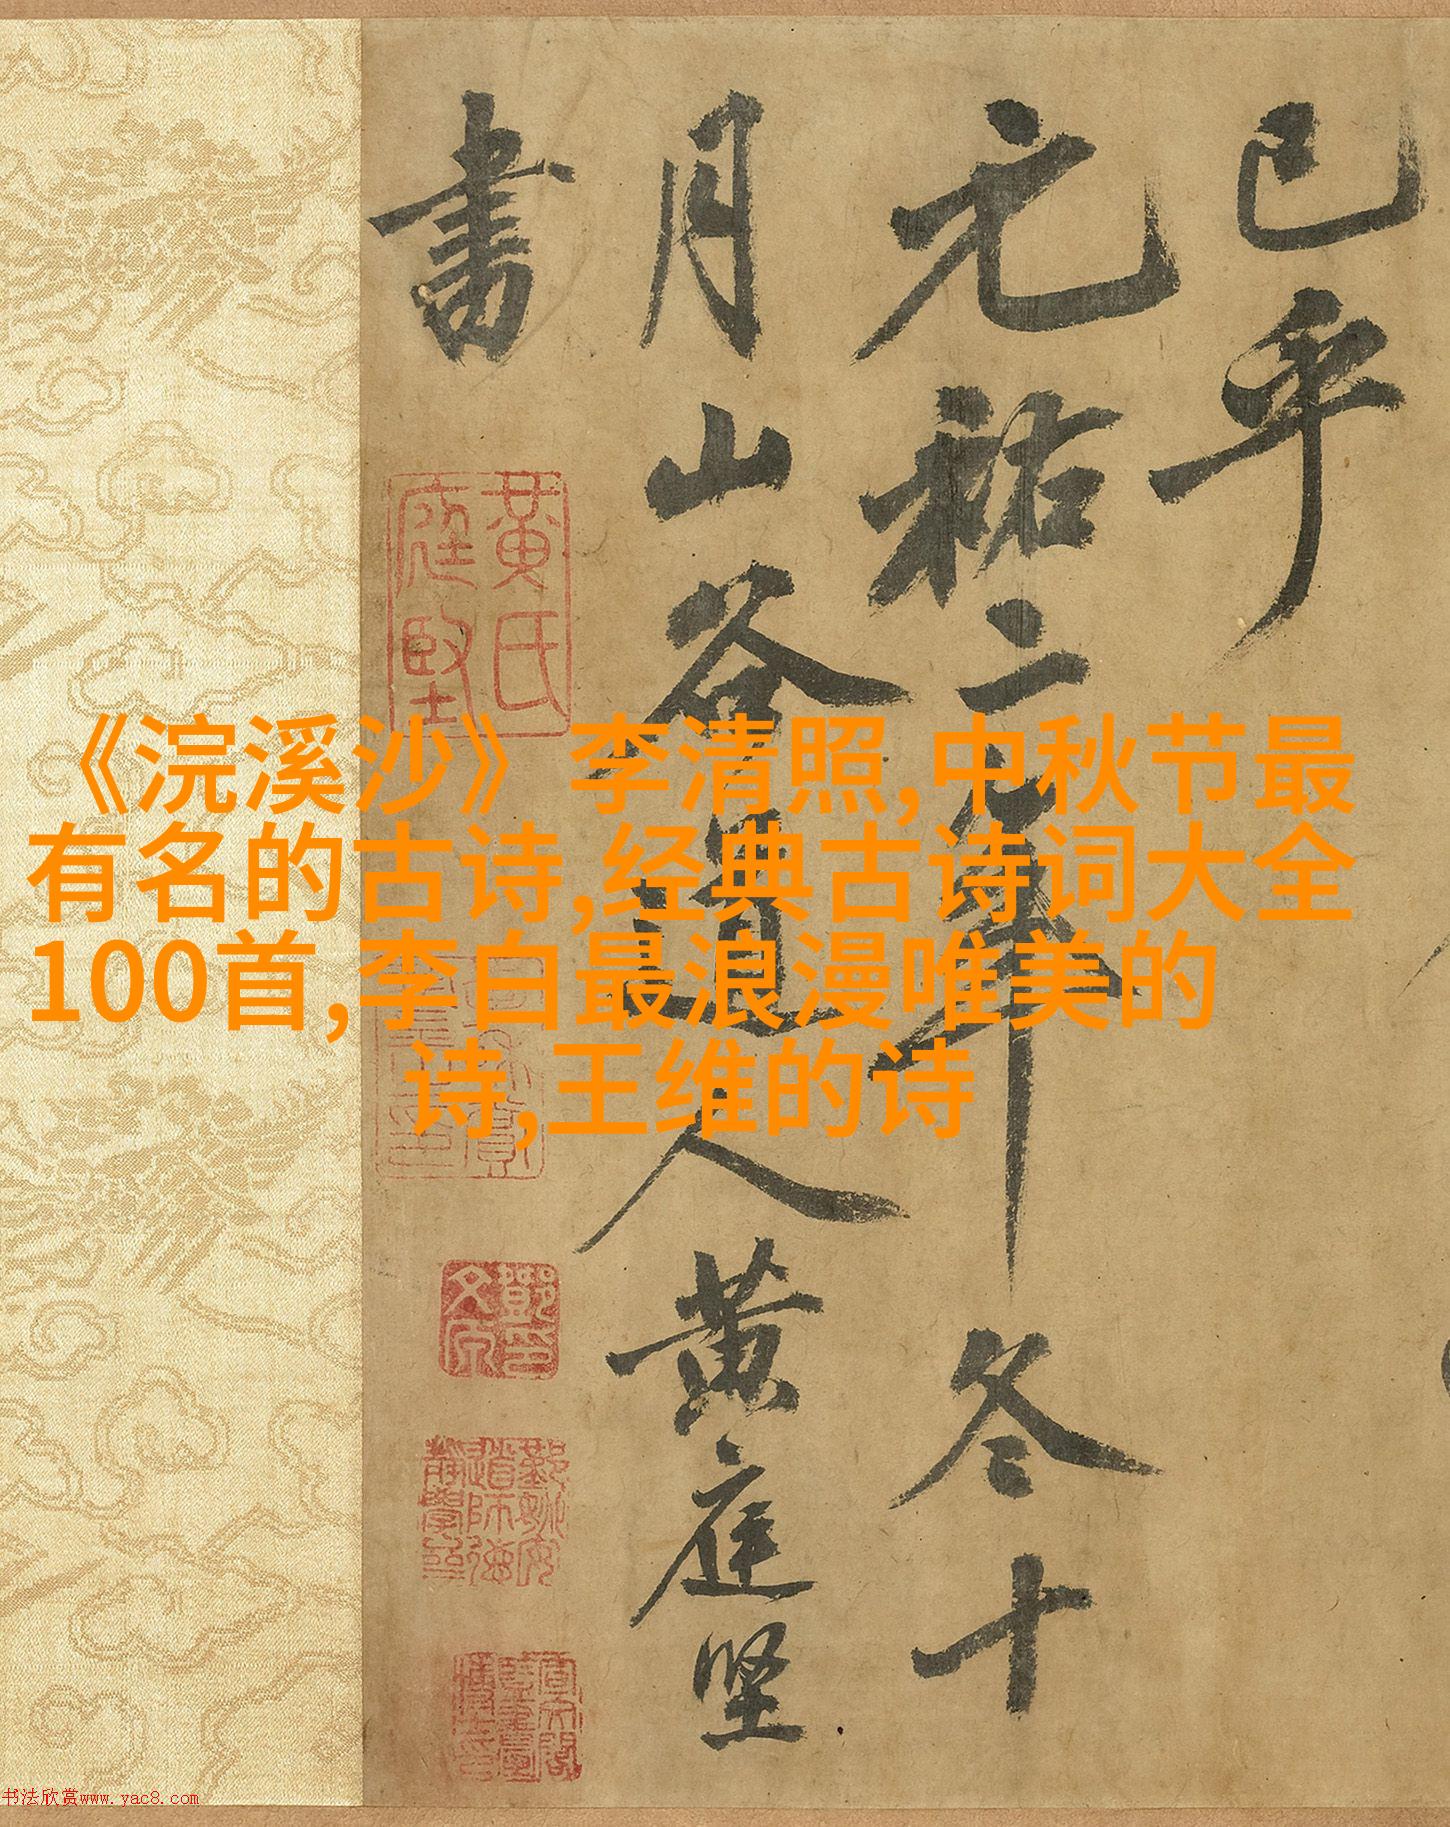 已乎
元祐二年冬十
月山谷道人黄庭坚
书
黄氏
庭坚
《浣溪沙》李清照,中秋节最
有名的古诗,经典古诗词大全
100首,李白最浪漫唯美的
诗,王维的诗
书法欣赏www.yac8.com